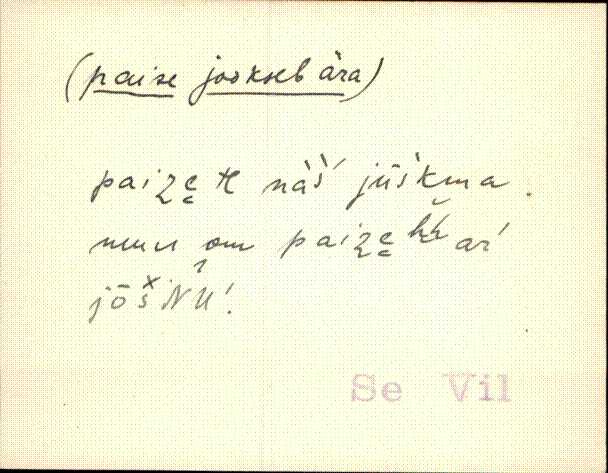 (paise jookseb ära)
paize̮ tt näśś jũśkma.
muu om paize̮ kk̆ äŕ
jõšNU!
Se Vil